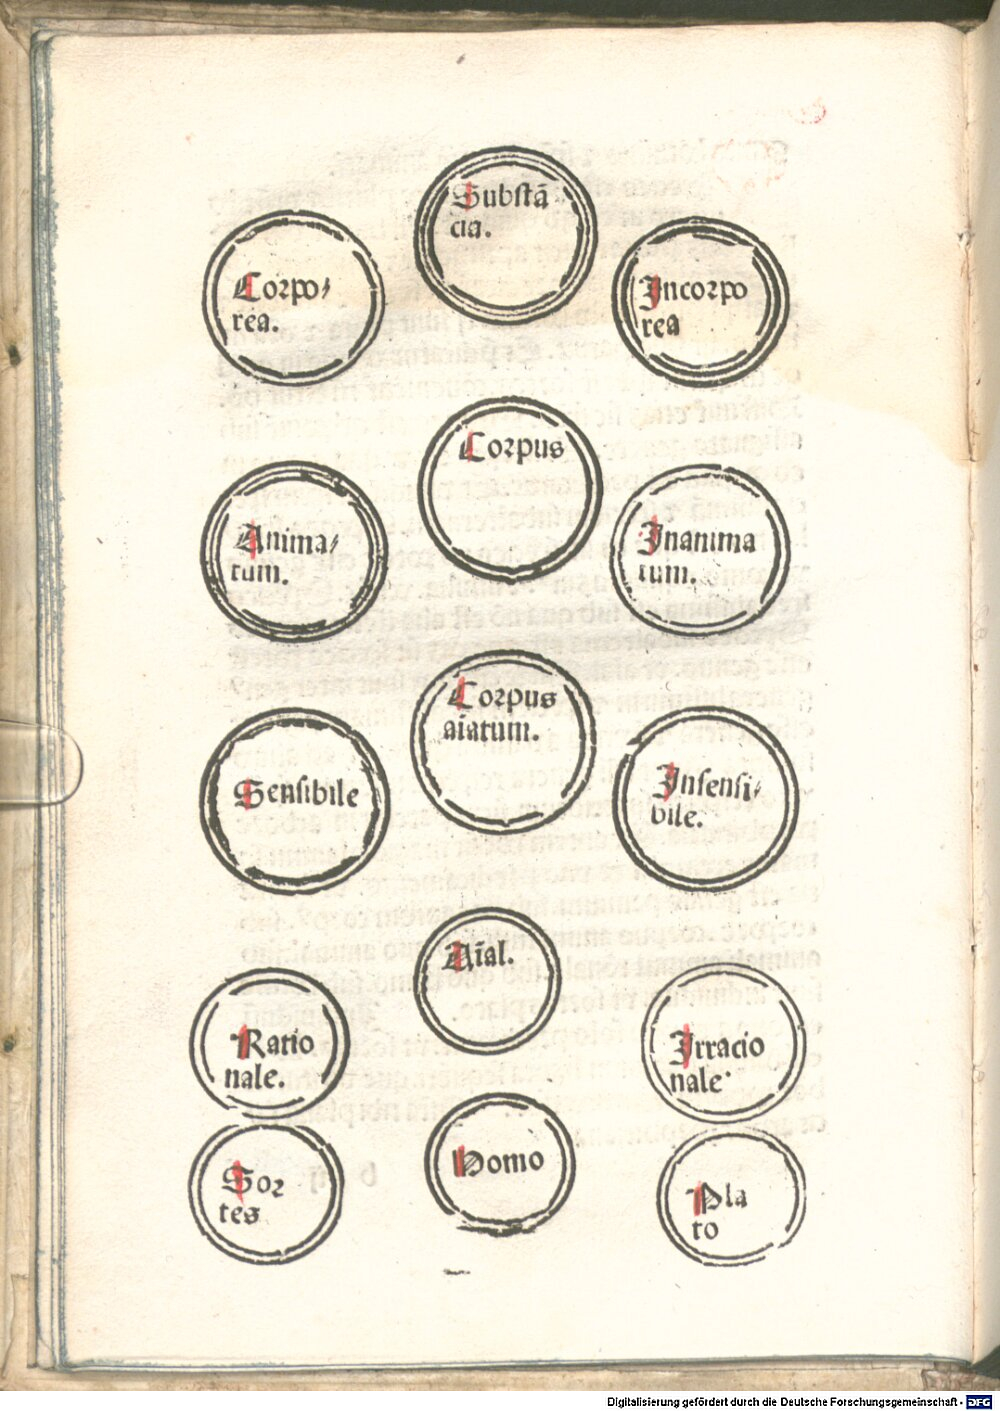 Substā
cia.
Corpo⸗
rea.
Incorpo
rea
Corpus
Anima⸗
tum.
Inanima
tum.
Corpus
aīatum.
Sensibile
Insensi⸗
bile.
Aīal.
Ratio
nale.
Irracio
nale.
Homo
Sor
tes
Pla
to
Digitalisierung gefördert durch die Deutsche Forschungsgemeinschaft - DFG